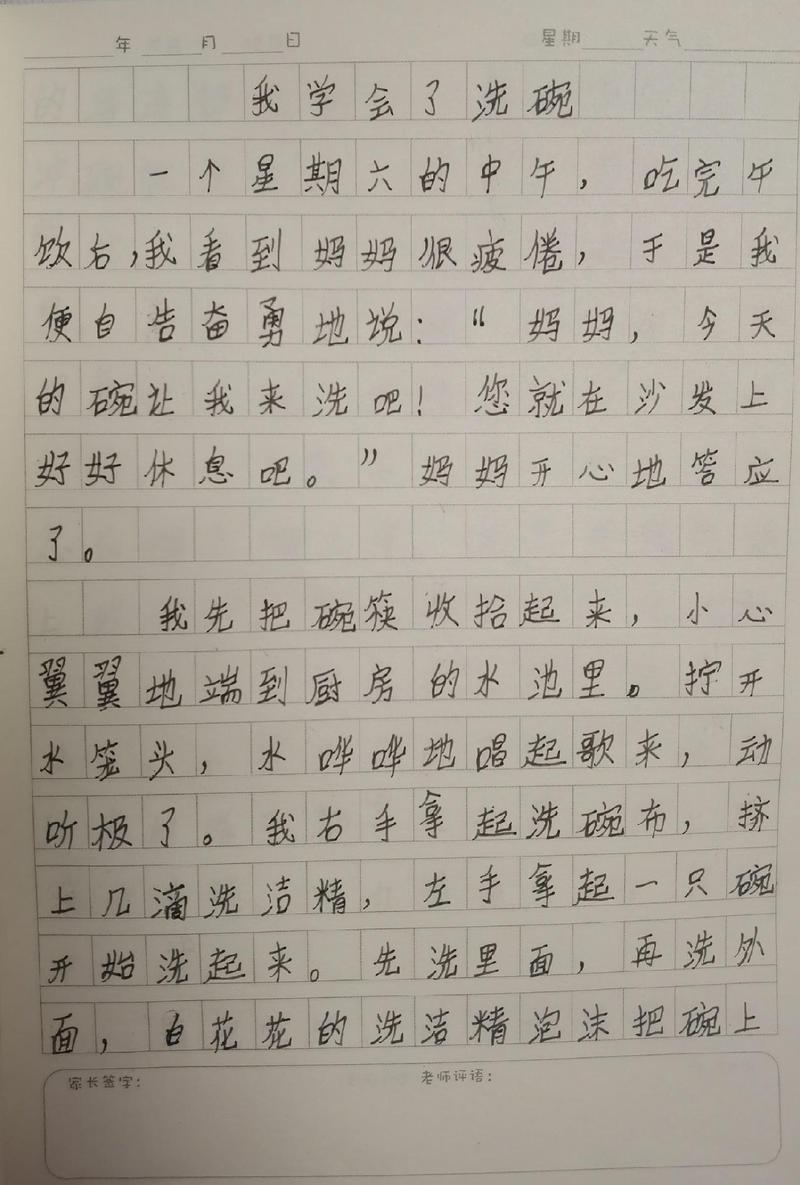 年 月 日 星期 天气
我学会了洗碗
一个星期六的中午，吃完午
饮右，我看到妈妈很疲倦，于是我
便自告奋勇地说：“妈妈，今天
的碗让我来洗吧！您就在沙发上
好好休息吧。”妈妈开心地答应
了。
我先把碗筷收拾起来，小心
翼翼地端到厨房的水池里。拧开
水笼头，水哗哗地唱起歌来，动
听极了。我右手拿起洗碗布，挤
上几滴洗洁精，左手拿起一只碗
开始洗起来。先洗里面，再洗外
面，白花花的洗洁精泡沫把碗上
家长签字： 老师评语：